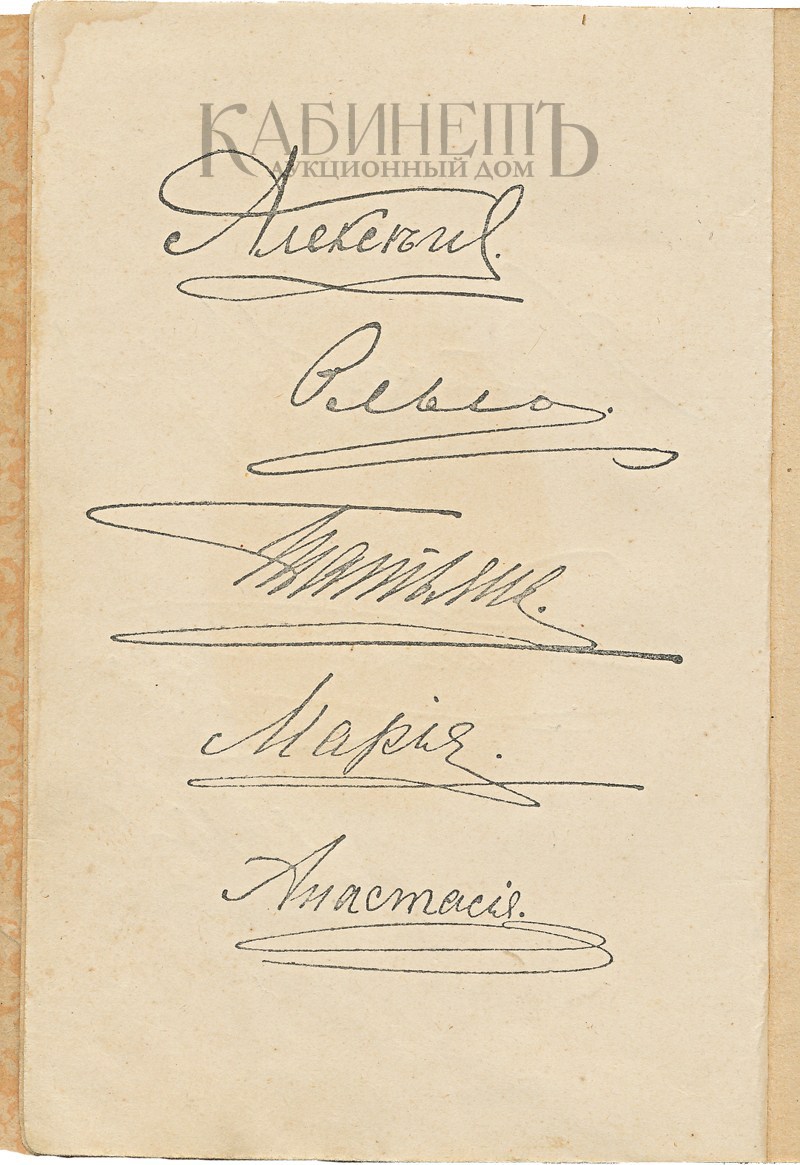 КАБИНЕТЪ
АУКЦИОННЫЙ ДОМ
Алексѣй.
Ольга.
Татьяна.
Марія.
Анастасія.